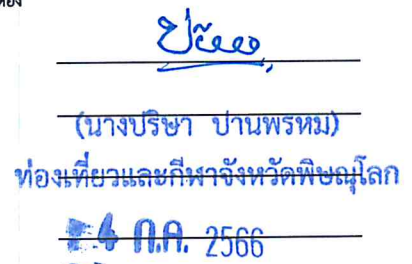 (นางปริษา ปานพรหม)
ท่องเที่ยวและกีฬาจังหวัดพิษณุโลก
4 ก.ค. 2566